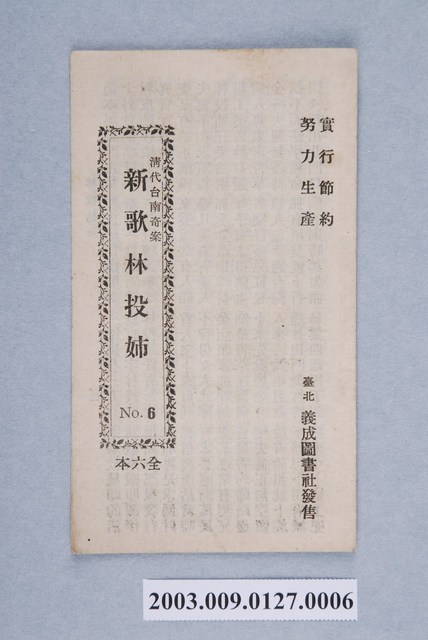 實行節約
努力生產
臺北 義成圖書社發售
清代台南奇案
新歌林投姉
No. 6
全六本
2003.009.0127.0006